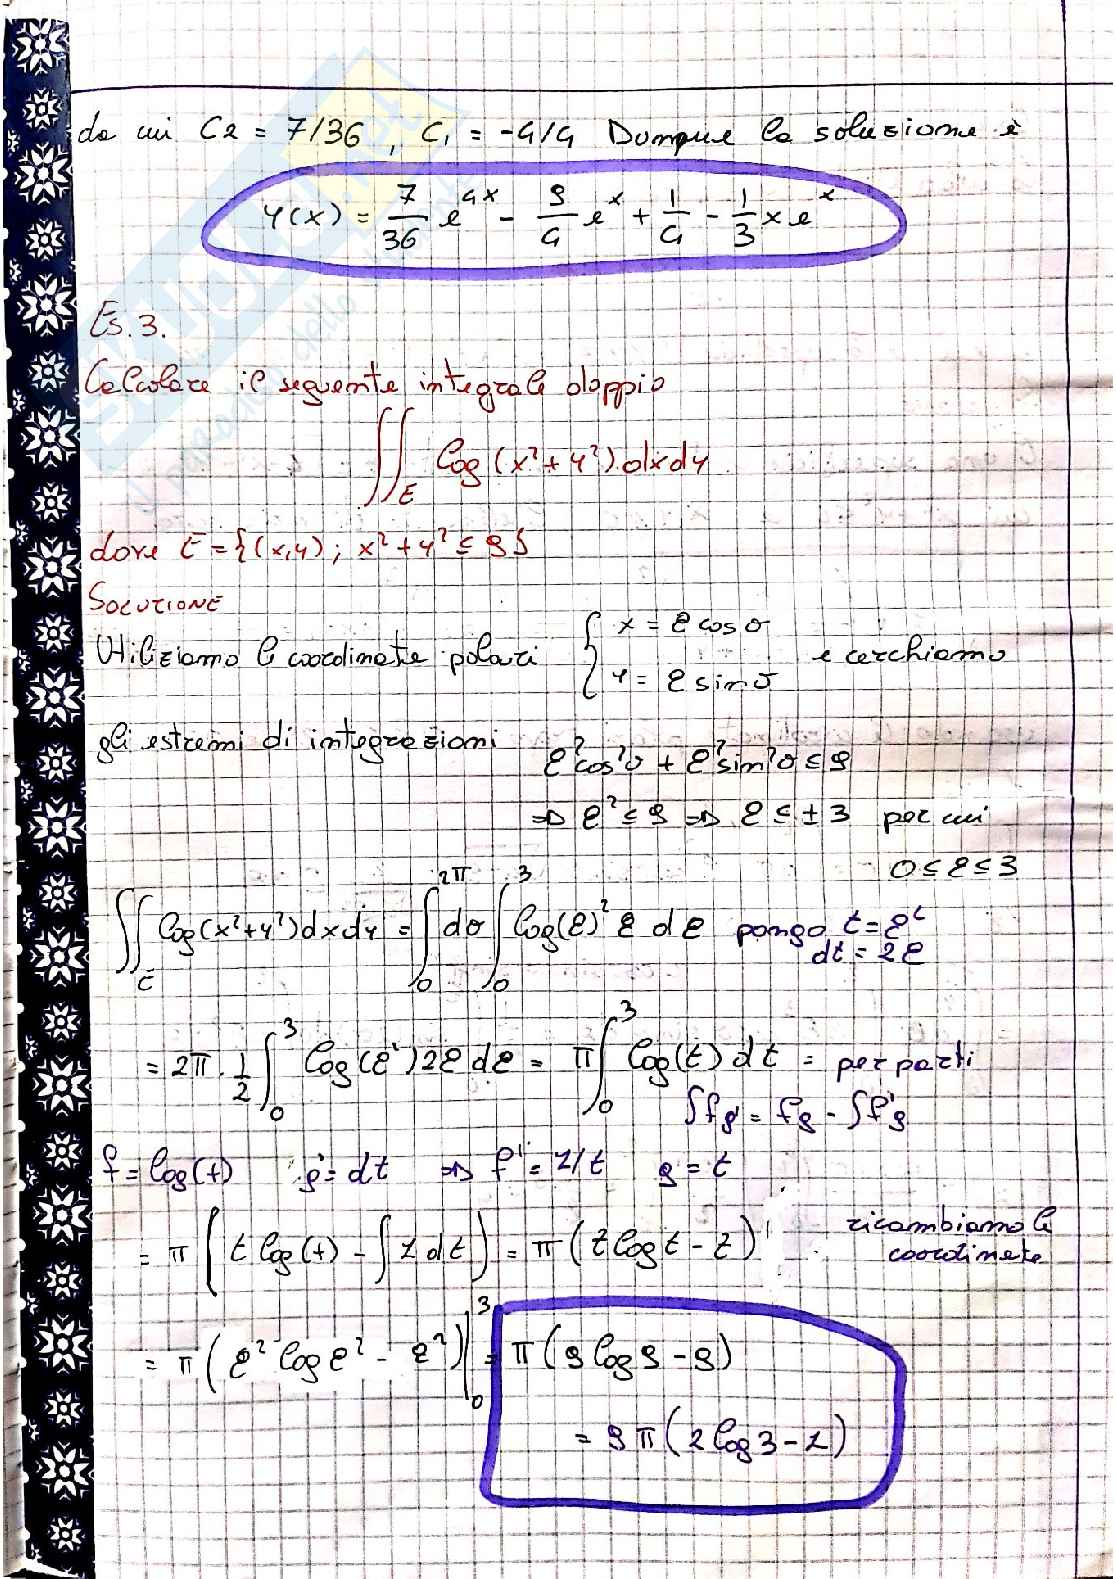 da cui C2 = 7/36, C1 = -9/4 Dunque la soluzione è
y(x) = 7/36 e^4x - 9/4 e^x + 1/4 - 1/3 x e^x
Es. 3.
Calcolare il seguente integrale doppio
∬_E log(x²+y²) dxdy
dove E = {(x,y); x²+y² ≤ 9}
SOLUZIONE
Utilizziamo le coordinate polari { x = ρ cos σ
y = ρ sin σ e cerchiamo
gli estremi di integrazioni
ρ²cos²σ + ρ²sin²σ ≤ 9
⇒ ρ² ≤ 9 ⇒ ρ ≤ ± 3 per cui
0 ≤ ρ ≤ 3
∬_E log(x²+y²) dxdy = ∫_0^2π dσ ∫_0^3 log(ρ)² ρ dρ pongo t = ρ²
dt = 2ρ
= 2π · 1/2 ∫_0^3 log(ρ²) 2ρ dρ = π ∫_0^3 log(t) dt = per parti
∫fg' = fg - ∫f'g
f = log(t) g' = dt ⇒ f' = 1/t g = t
= π ( t log(t) - ∫ 1 dt ) = π ( t log t - t ) ricambiamo le
coordinate
= π ( ρ² log ρ² - ρ² ) |_0^3 = π ( 9 log 9 - 9 )
= 9 π ( 2 log 3 - 1 )